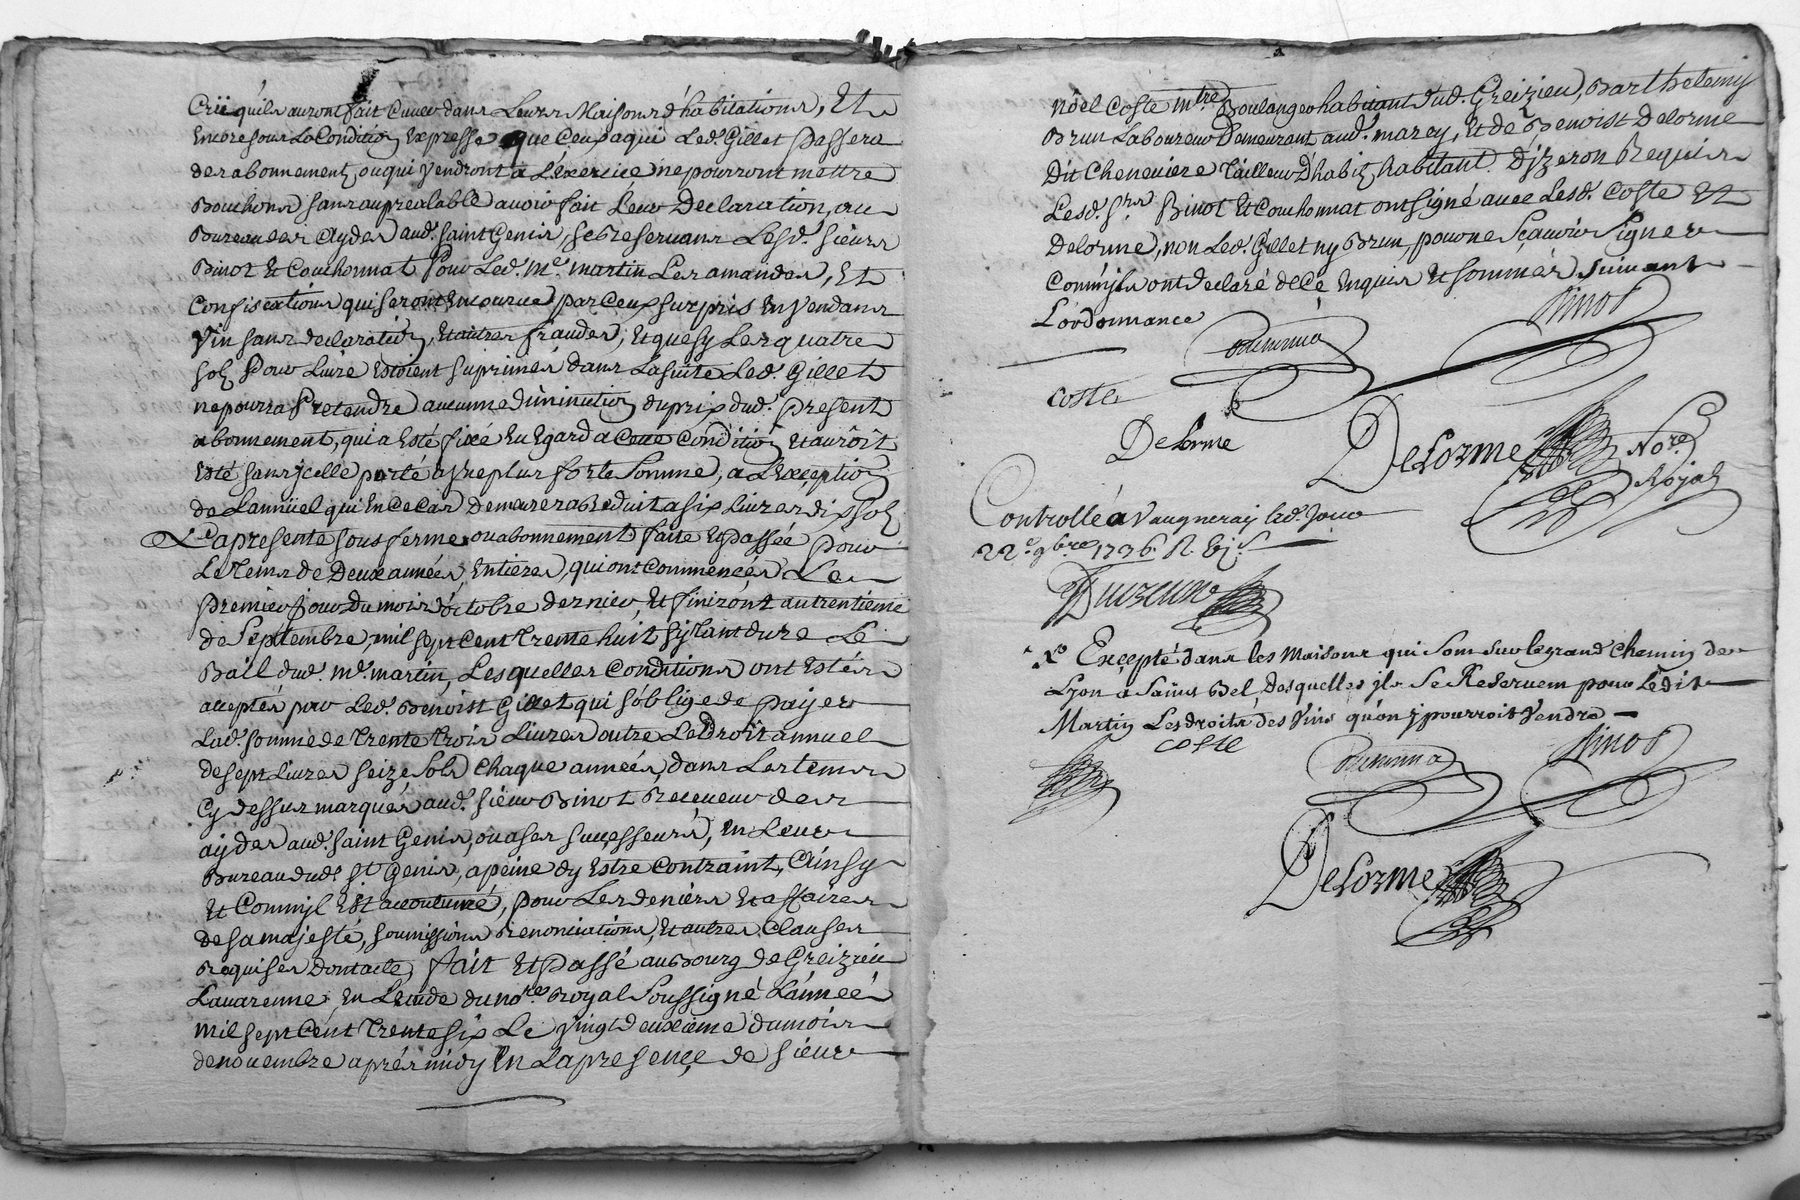 Crü qu'ils auront fait Cuver dans Leurs Maisons d'habitations, Et
Encore sous La Condition Expresse que Ceux aqui Led. Gillet Passera
des abonnement, ou qui Vendront a L'Exercice ne pourront mettre
Bouchons sans au prealable avoir fait Leur Declaration, au
Bureau des Aydes aud. Saint Genis, se Reservans Lesd. sieurs
Binot Et Couchonnat Pour Led. Me. Martin Les amandes, Et
Confiscations qui seront Encourues par Ceux surpris En Vendans
Vin sans declaration, Et autres fraudes; Et que sy Les quatre
sols Pour Livre Estoient suprimés dans La suitte Led. Gillet
ne pourra Pretendre aucunne diminution du prix dud. Present
abonnement, qui a Esté fixé Eu Egard a Cette condition Et auroit
Esté sans jcelle porté a Vne plus forte Somme; a L'Exception
de L'annüel qui En Ce Cas demeurera Reduit a six Livres dix sols
La presente sous ferme ou abonnement faite Et passée pour
Le Tems de Deux années Entieres, qui ont commencées Le
Premier jour du mois d'octobre dernier, Et finiront au trentieme
de Septembre, mil sept Cent Trente huit sy tant dure Le
Bail dud. Me. martin, Lesquelles Conditions ont Estés
acceptés par Led. Benoist Gillet qui s'oblige de payer
Lad. somme de Trente Trois Livres outre Le Droit annuel
de sept Livres seize sols Chaque années, dans Les tems
Cy dessus marqués, aud. sieur Binot Receveur des
aydes aud. Saint Genis, ou a ses successeurs, En Leur
Bureau dud. St Genis, a peine d'y Estre Contraint, Ainsy
Et Comm'jl Est accoutumé, pour Les deniers Et affaires
de sa majesté, soumissions Renonciations, Et autres Clauses
Requises dont acte, fait Et Passé au Bourg de Greizieu
Lavarenne, En L'etude du nore. Royal Soussigné L'année
mil sept Cent Trente six Le Vingt deuxieme du mois
de novembre aprés midy En La presence de Sieur
Nöel Coste mtre Boulanger habitant dud. Greizieu, Barthelemy
Brun Laboureur Demeurant aud. marcy, Et de Benoist Delorme
Dit Cheneviere Tailleur D'habits habitant D'jzeron Requis
Lesd. Srs Binot Et Couchonnat ont signé avec Lesd. Coste Et
Delorme, non Led. Gillet ny Brun, pour ne sçavoir Signer
Comm'jls ont declaré de Ce Enquis Et sommés suivant
L'ordonnance
Binot
Coste
Delorme
Delorme Nore.
Royal
Controllé a Vaugneray led. Jour
22e 9bre 1736. R.
Excepté dans les Maisons qui sont sur le grand Chemin de
Lyon a Saint Bel, Desquelles jls se Reservent pour Ledit
Martin Les droits des Vins qu'on y pourroit Vendre
Coste
Binot
Delorme